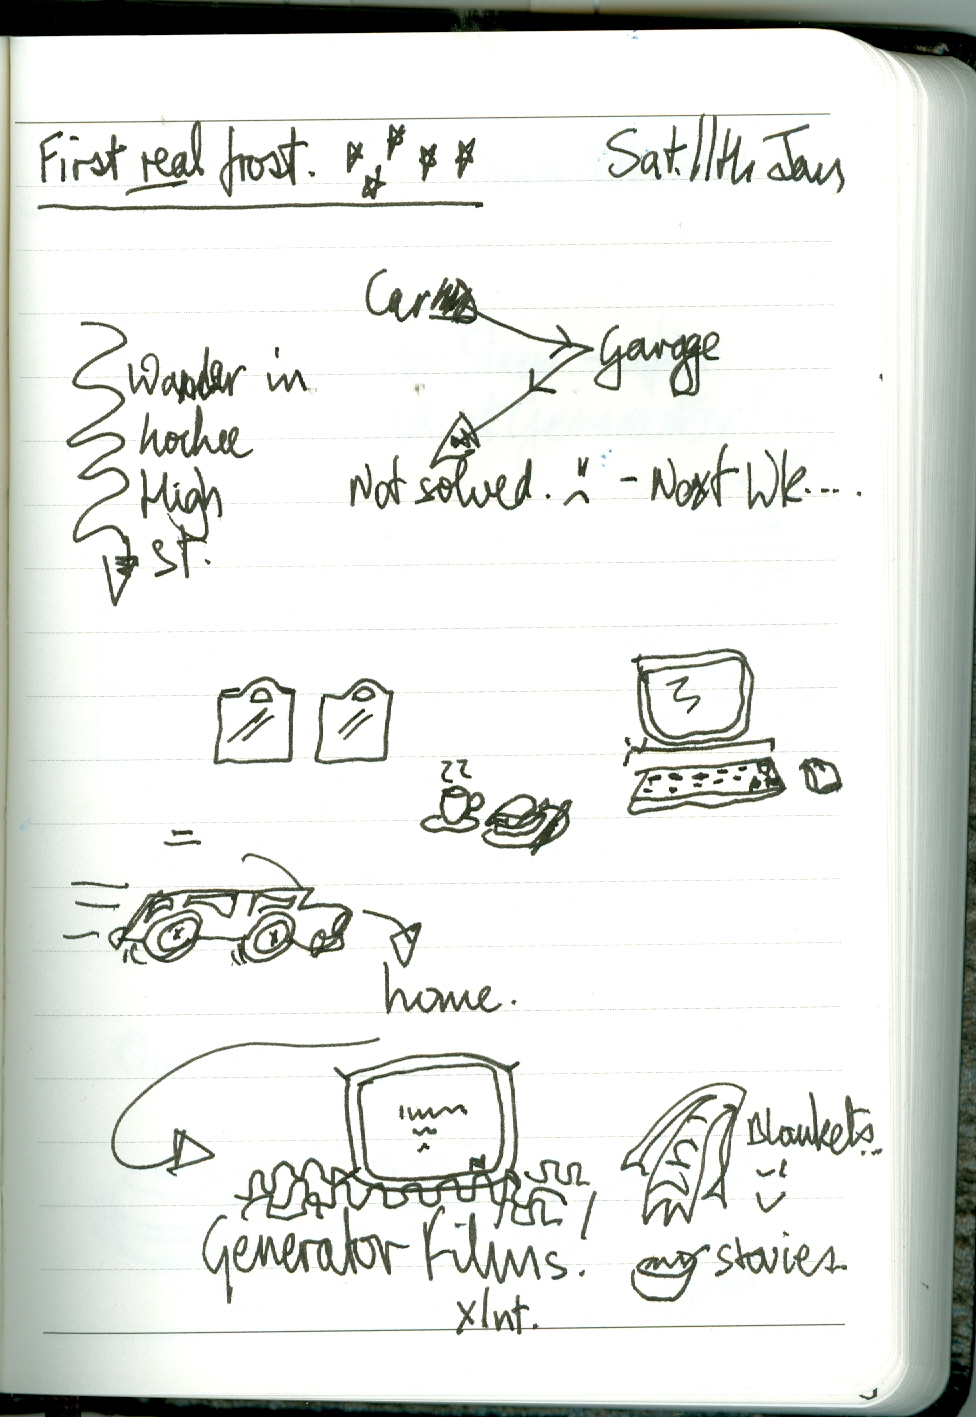 First real frost.
Sat. 11th Jan
Car
Garage
Not solved. - Next Wk....
Wander in
Lochee
High
St.
home.
Generator Films!
xlnt.
Blankets..
stovies